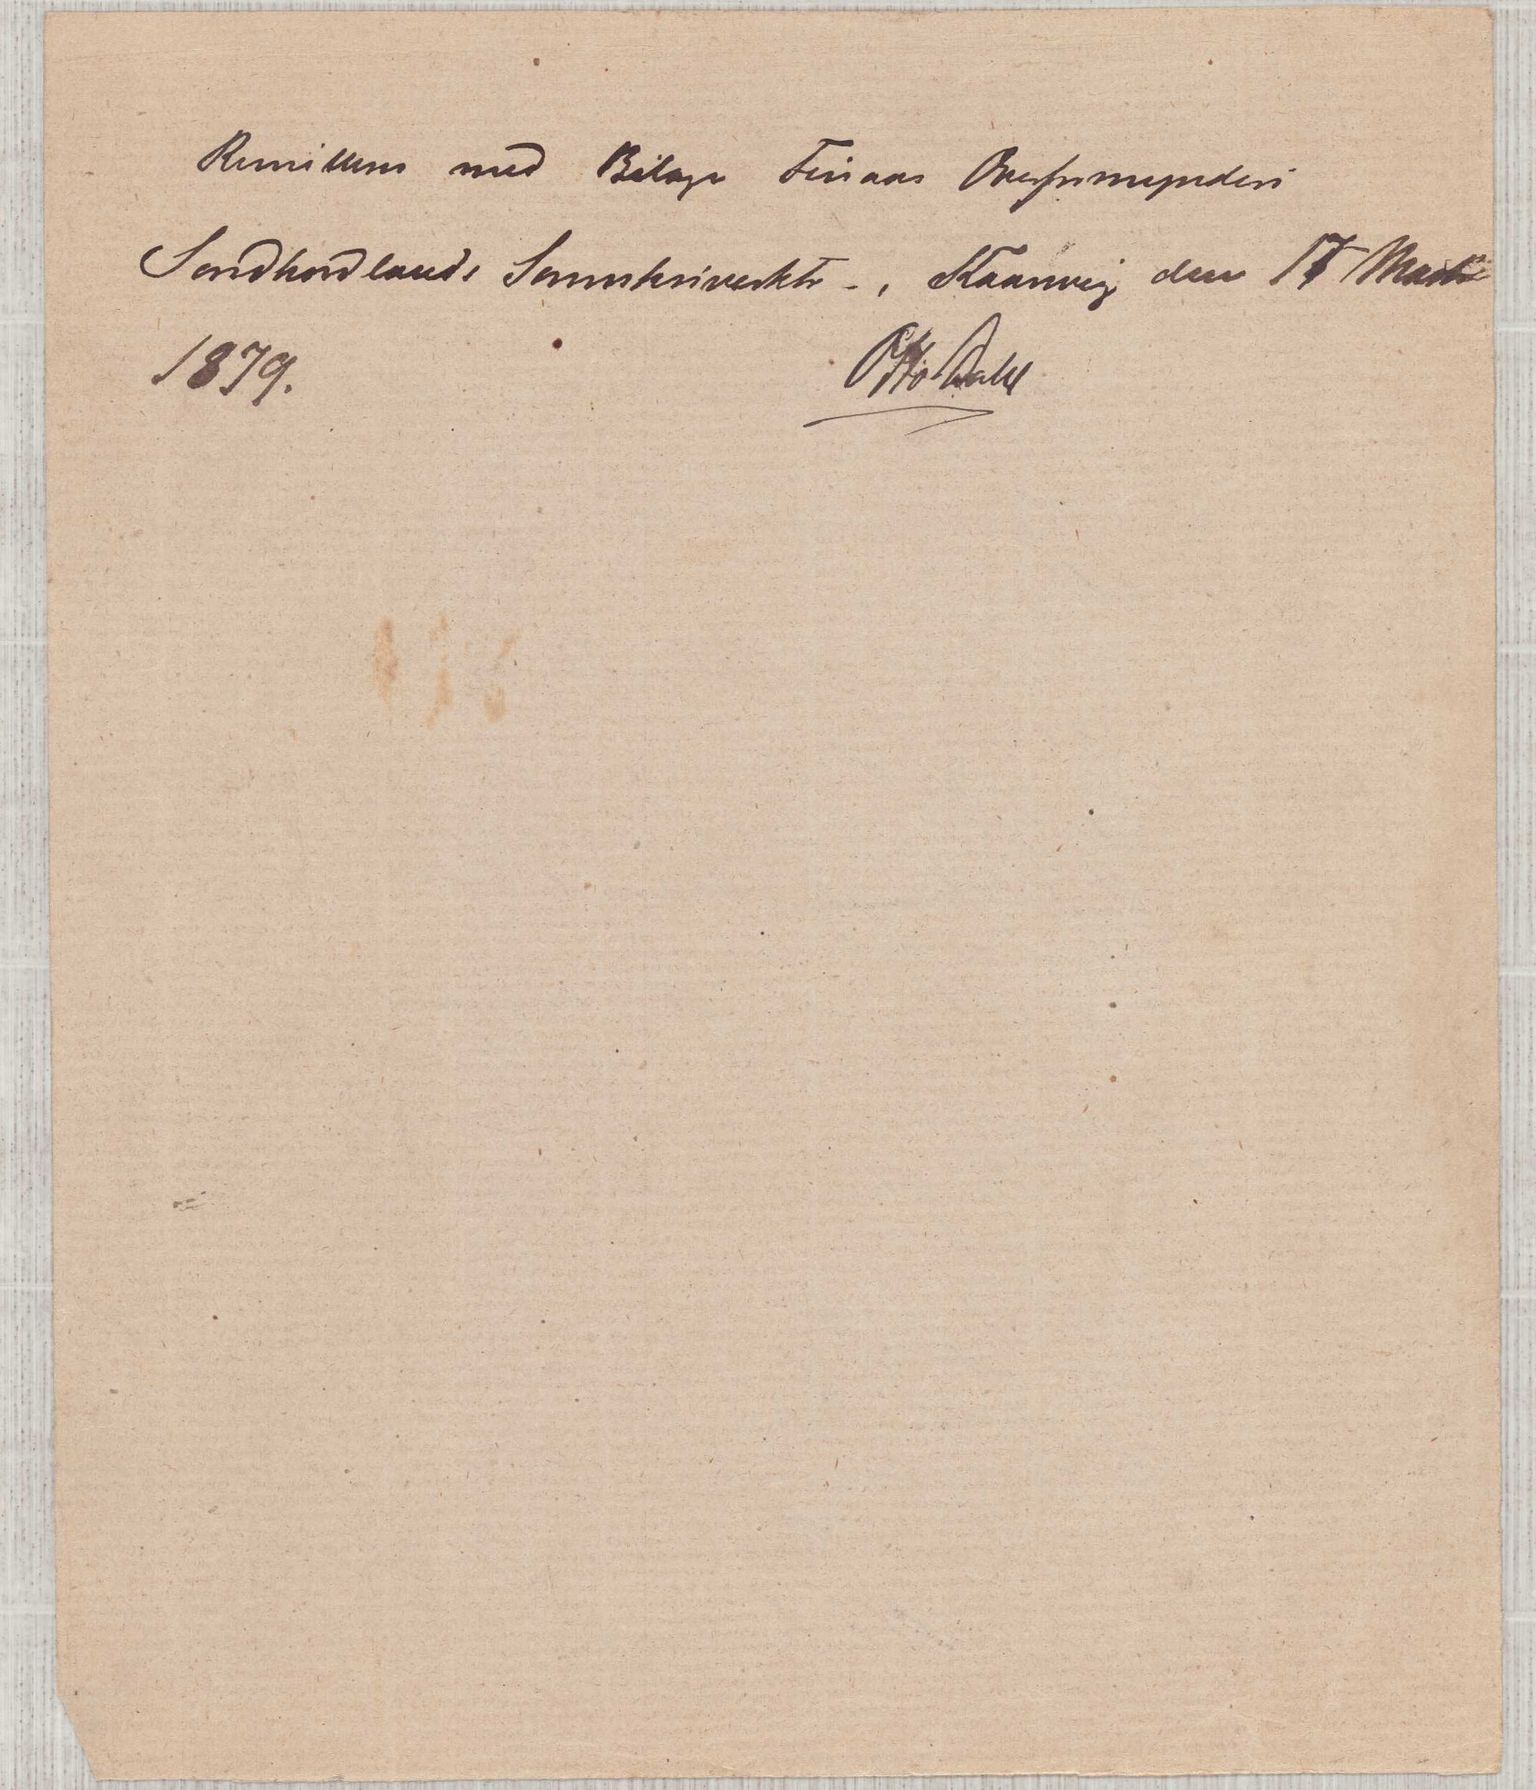 Remitteres med Bilage Finaas Overformynderi
Søndhordlands Sorenskriverktr -, Kaarevig den 17 Marts
1879.
Otto Dahl